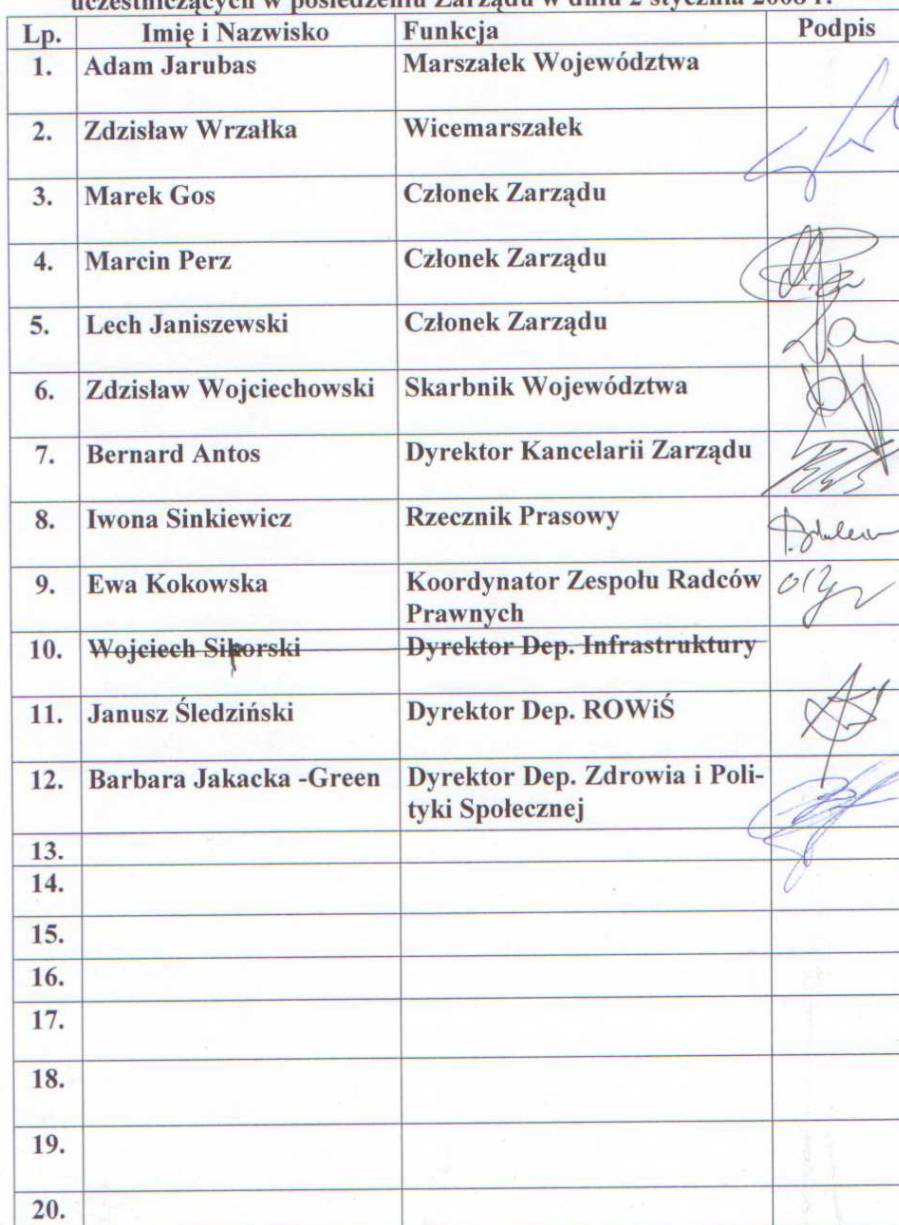 uczestniczących w posiedzeniu Zarządu w dniu 2 stycznia 2008 r.
Lp. Imię i Nazwisko Funkcja Podpis
1. Adam Jarubas Marszałek Województwa
2. Zdzisław Wrzałka Wicemarszałek
3. Marek Gos Członek Zarządu
4. Marcin Perz Członek Zarządu
5. Lech Janiszewski Członek Zarządu
6. Zdzisław Wojciechowski Skarbnik Województwa
7. Bernard Antos Dyrektor Kancelarii Zarządu
8. Iwona Sinkiewicz Rzecznik Prasowy
9. Ewa Kokowska Koordynator Zespołu Radców
Prawnych
10. Wojciech Sikorski Dyrektor Dep. Infrastruktury
11. Janusz Śledziński Dyrektor Dep. ROWiŚ
12. Barbara Jakacka -Green Dyrektor Dep. Zdrowia i Poli-
tyki Społecznej
13.
14.
15.
16.
17.
18.
19.
20.